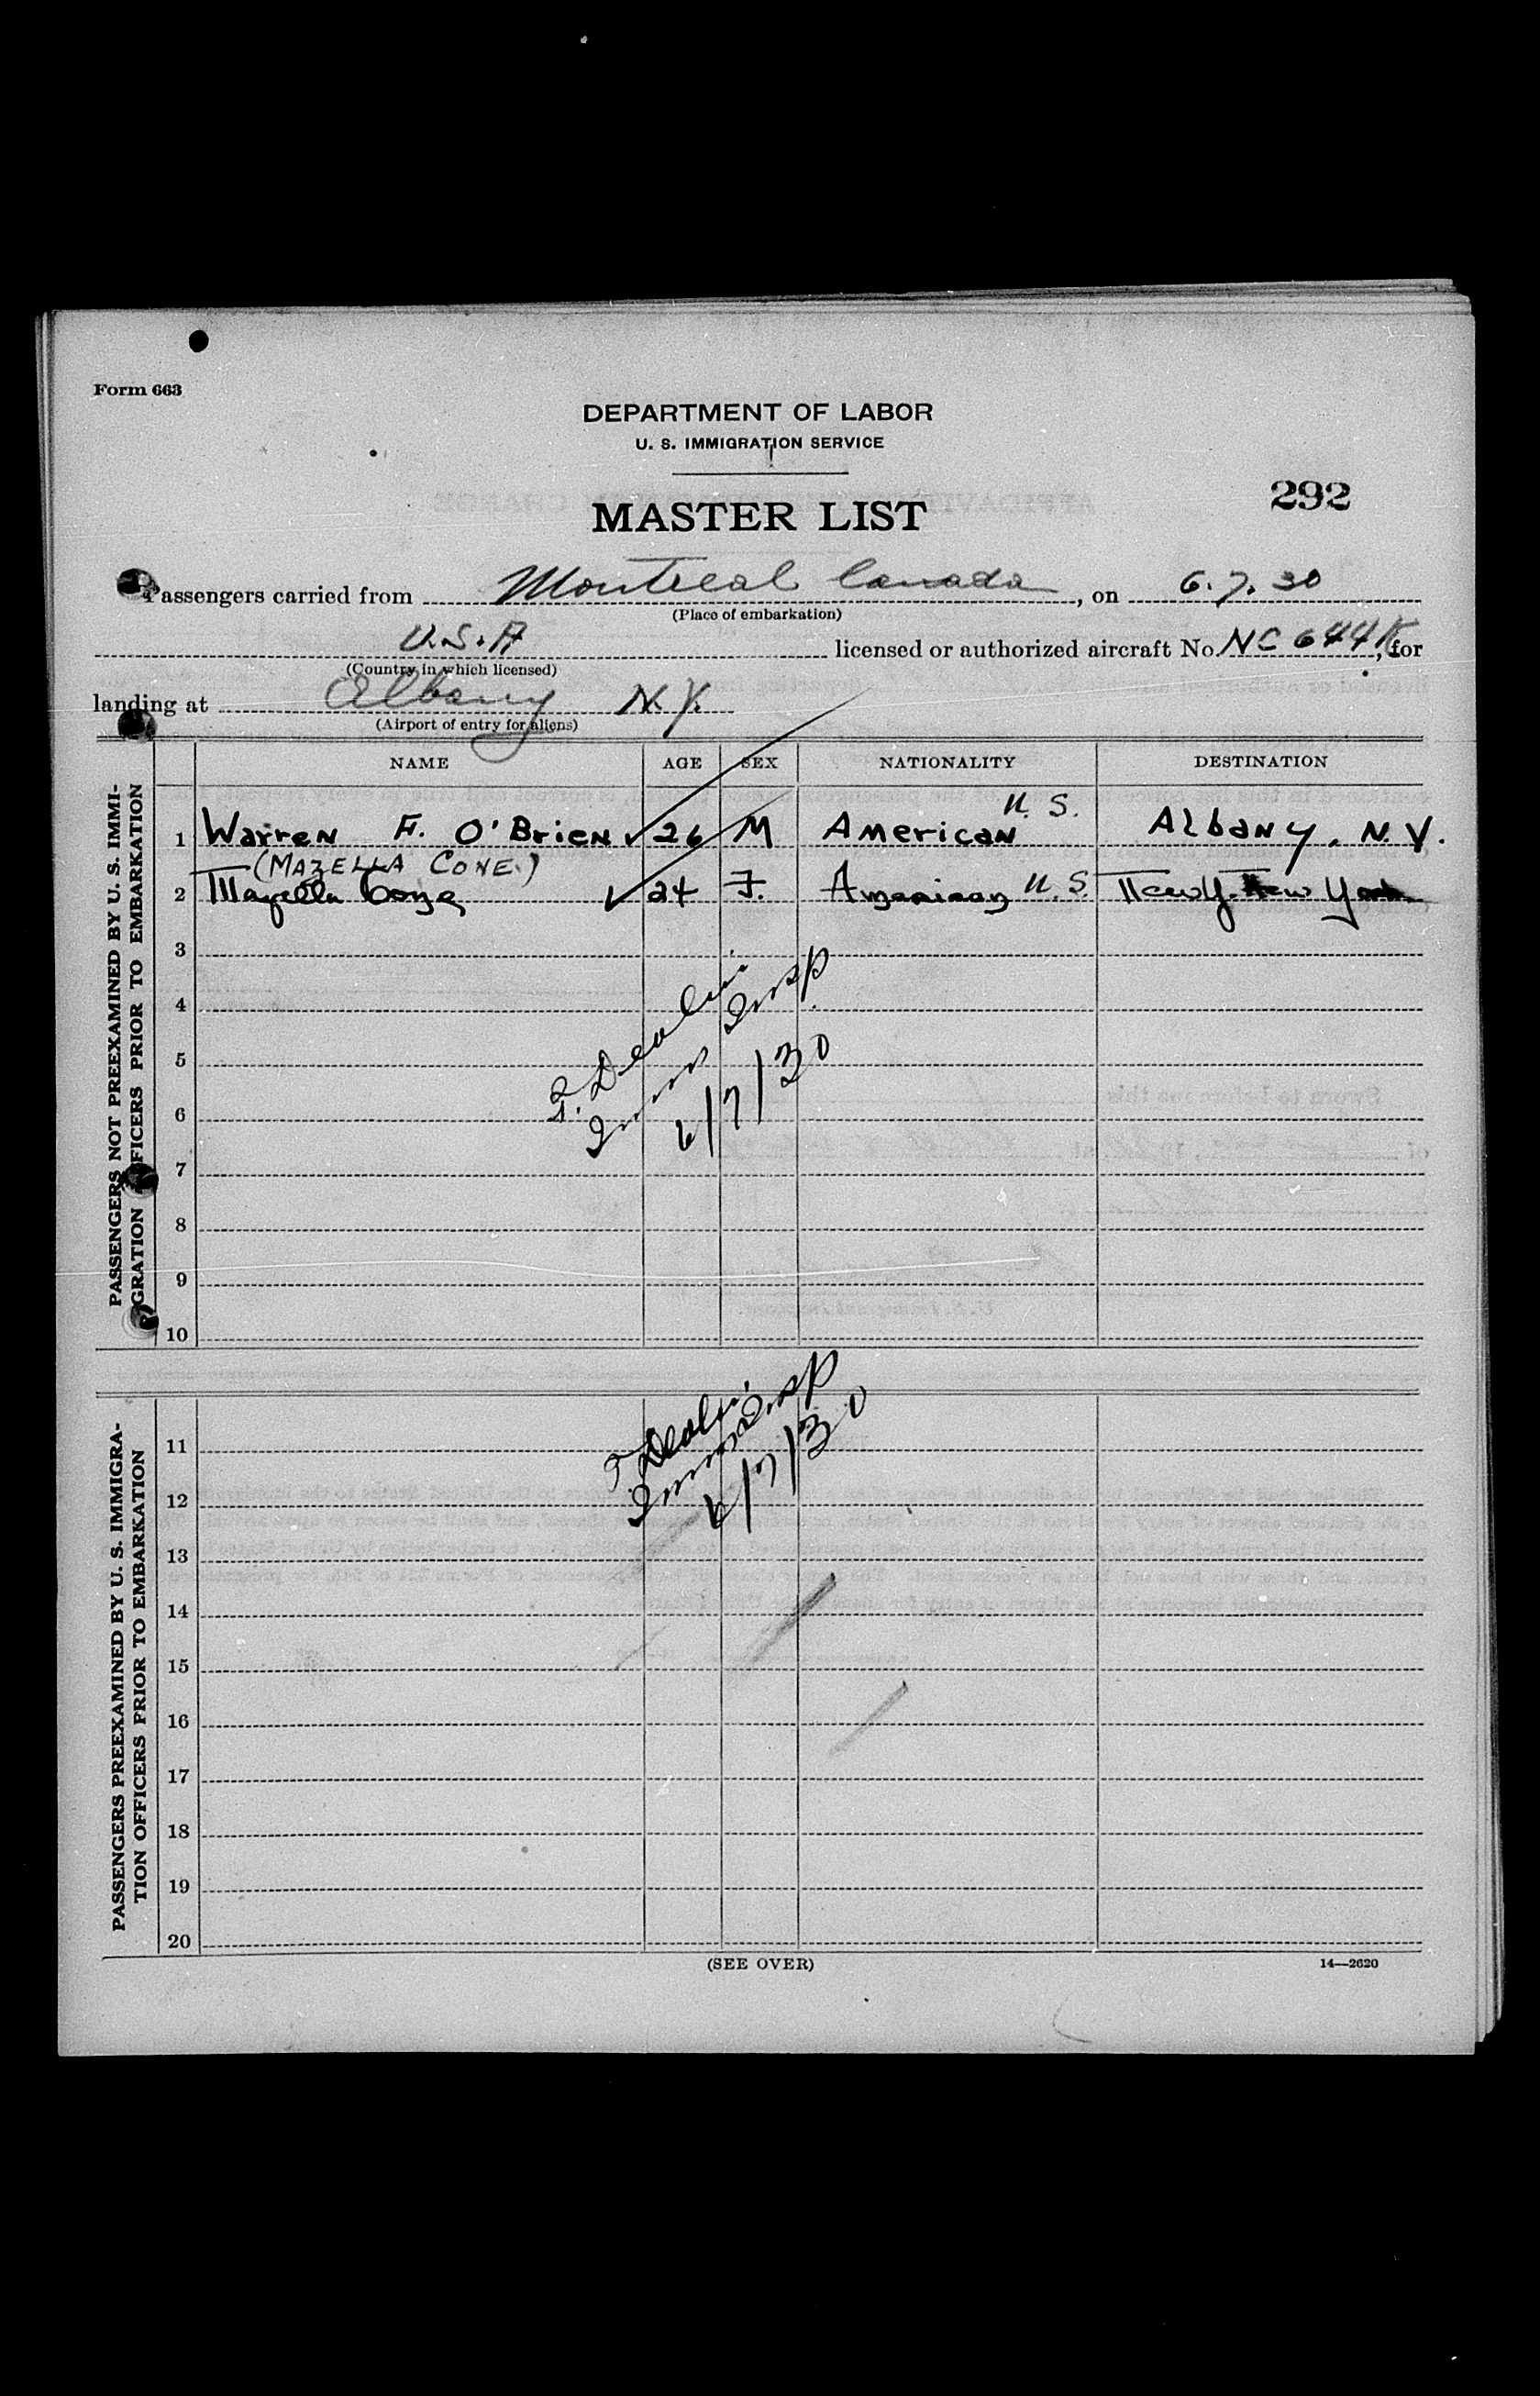 Form 663
DEPARTMENT OF LABOR
U. S. IMMIGRATION SERVICE
292
MASTER LIST
Passengers carried from Montreal Canada, on 6.7.30
(Place of embarkation)
U.S.A licensed or authorized aircraft No. NC 644K, for
(Country in which licensed)
landing at Albany N.Y.
(Airport of entry for aliens)
NAME AGE SEX NATIONALITY DESTINATION
PASSENGERS NOT PREEXAMINED BY U. S. IMMI-
GRATION OFFICERS PRIOR TO EMBARKATION
U. S.
1 Warren F. O'Brien ✓ 26 M American Albany, N.Y.
(MAZELLA CONE.)
2 Mazella Cone ✓ 24 F. American U.S. New York
3
4
5
6
7
8
9
10
Immg Insp
6/7/30
PASSENGERS PREEXAMINED BY U. S. IMMIGRA-
TION OFFICERS PRIOR TO EMBARKATION
11
12
13
14
15
16
17
18
19
20
Immg Insp
6/7/30
(SEE OVER)
14—2620